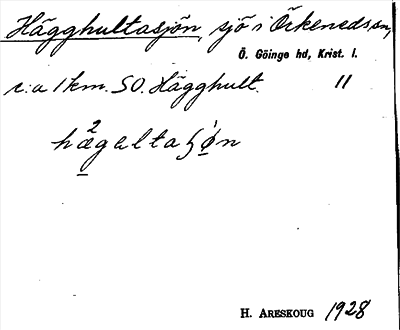 Hägghultasjön, sjö i Örkeneds sn,
Ö. Göinge hd, Krist. l.
c:a 1 km. SO. Hägghult. 11
hæ²galtaʃø̀n
H. Areskoug 1928